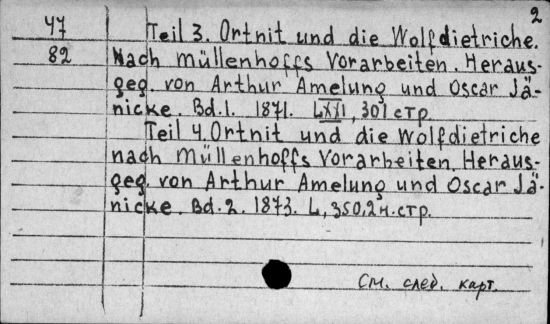 2
47 Teil 3. Ortnit und die Wolfdietriche.
82 Nach Müllenhoffs Vorarbeiten. Heraus-
geg. von Arthur Amelung und Oscar Jä-
nicke. Bd. 1. 1871. LXXI, 301 стр.
Teil 4. Ortnit und die Wolfdietriche
nach Müllenhoffs Vorarbeiten. Heraus-
geg. von Arthur Amelung und Oscar Jä-
nicke. Bd. 2. 1873. L, 350, 2 н. стр.
См. след. карт.